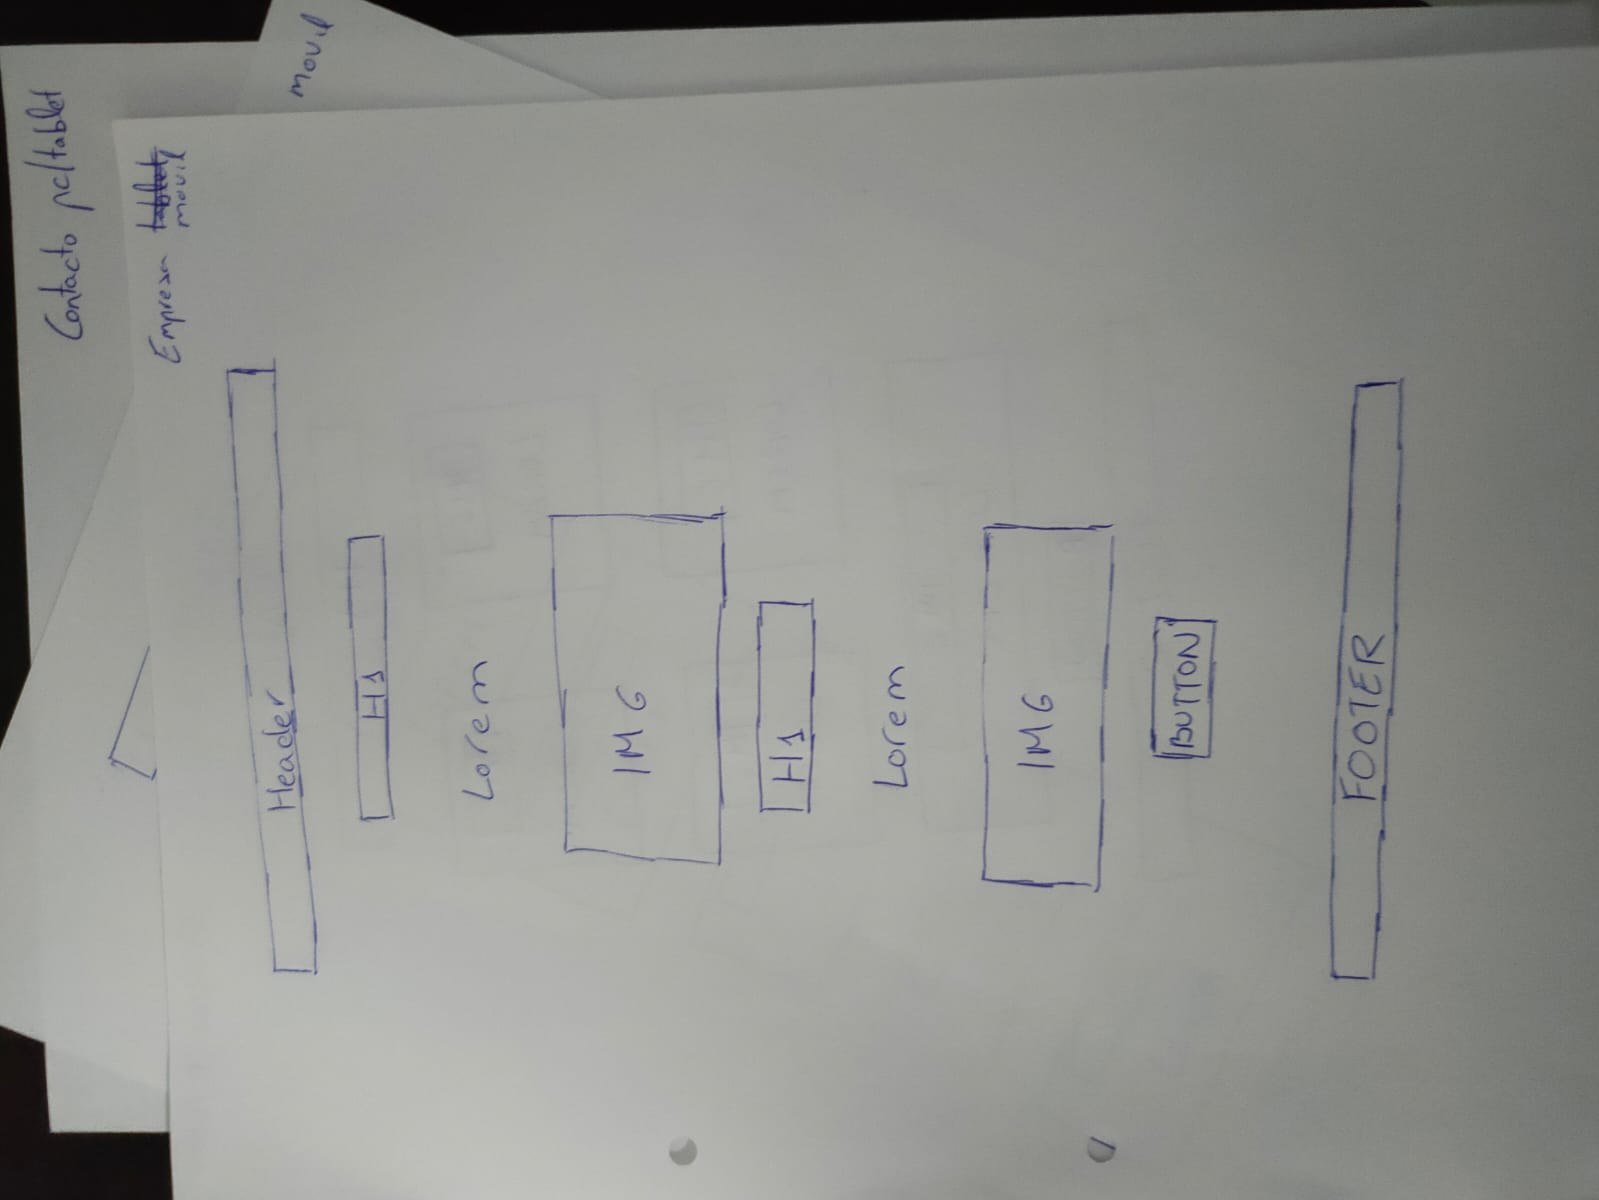 Contacto pc/tablet
movil
Empresa tablet
movil
Header
H1
Lorem
IMG
H1
Lorem
IMG
BUTTON
FOOTER